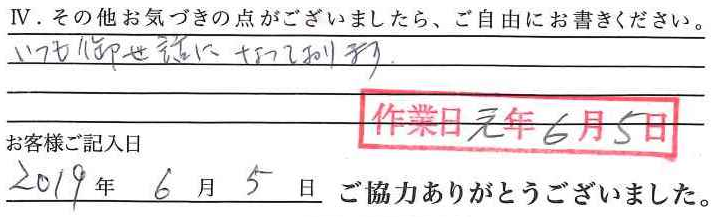 Ⅳ．その他お気づきの点がございましたら、ご自由にお書きください。
いつも御世話になっております.
作業日元年6月5日
お客様ご記入日
2019年 6月 5日 ご協力ありがとうございました。